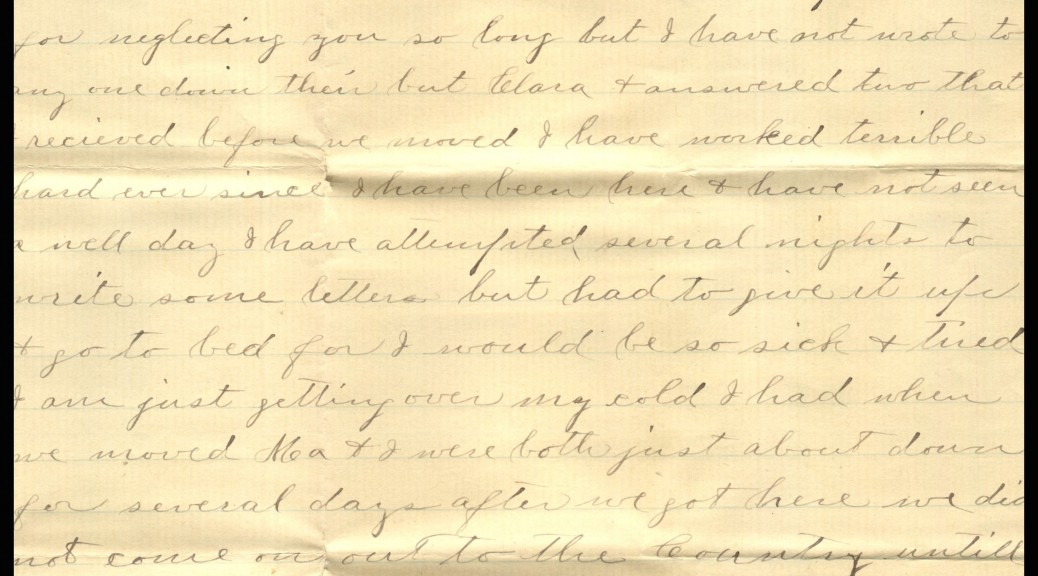 for neglecting you so long but I have not wrote to
any one down their but Clara & answered two that
recieved before we moved I have worked terrible
hard ever since I have been here & have not seen
a well day I have attempted several nights to
write some letters but had to give it up
& go to bed for I would be so sick & tired
I am just getting over my cold I had when
we moved Ma & I were both just about down
for several days after we got here we did
not come on out to the Country untill